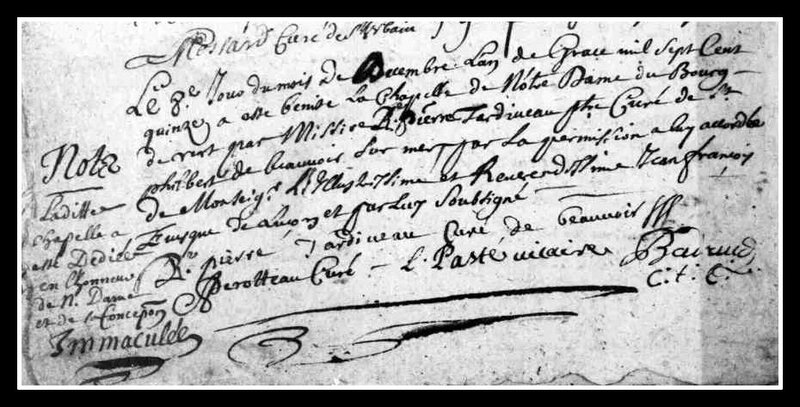 Mossard Curé de St Urbain
Le 8e Jour du mois De Decembre Lan de Grace mil Sept Cent
quinze a este benite La Chapelle de Nôtre Dame du Bourg
de vert par Missire Pierre Tardiveau ptre Curé de St
philbert de beauvoir Sur mer par La permission a luy accordée
de Monseigr L'Illustrissime et Reverendissime Jean francois
Evesque de Luçon et par Luy Soubsigné
Pierre Tardiveau Curé de beauvoir
Perotteau Curé L. Pasté vicaire Bairaud
C. t. C.
Nota
Laditte
chapelle a
esté Dediée
en lhonneur
de N. Dame
et de sa Concepon
Immaculée